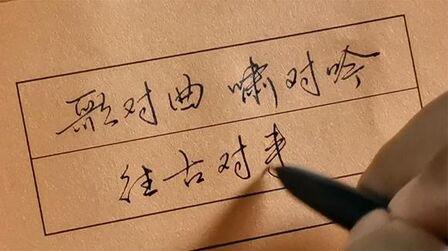 歌对曲 啸对吟
往古对来